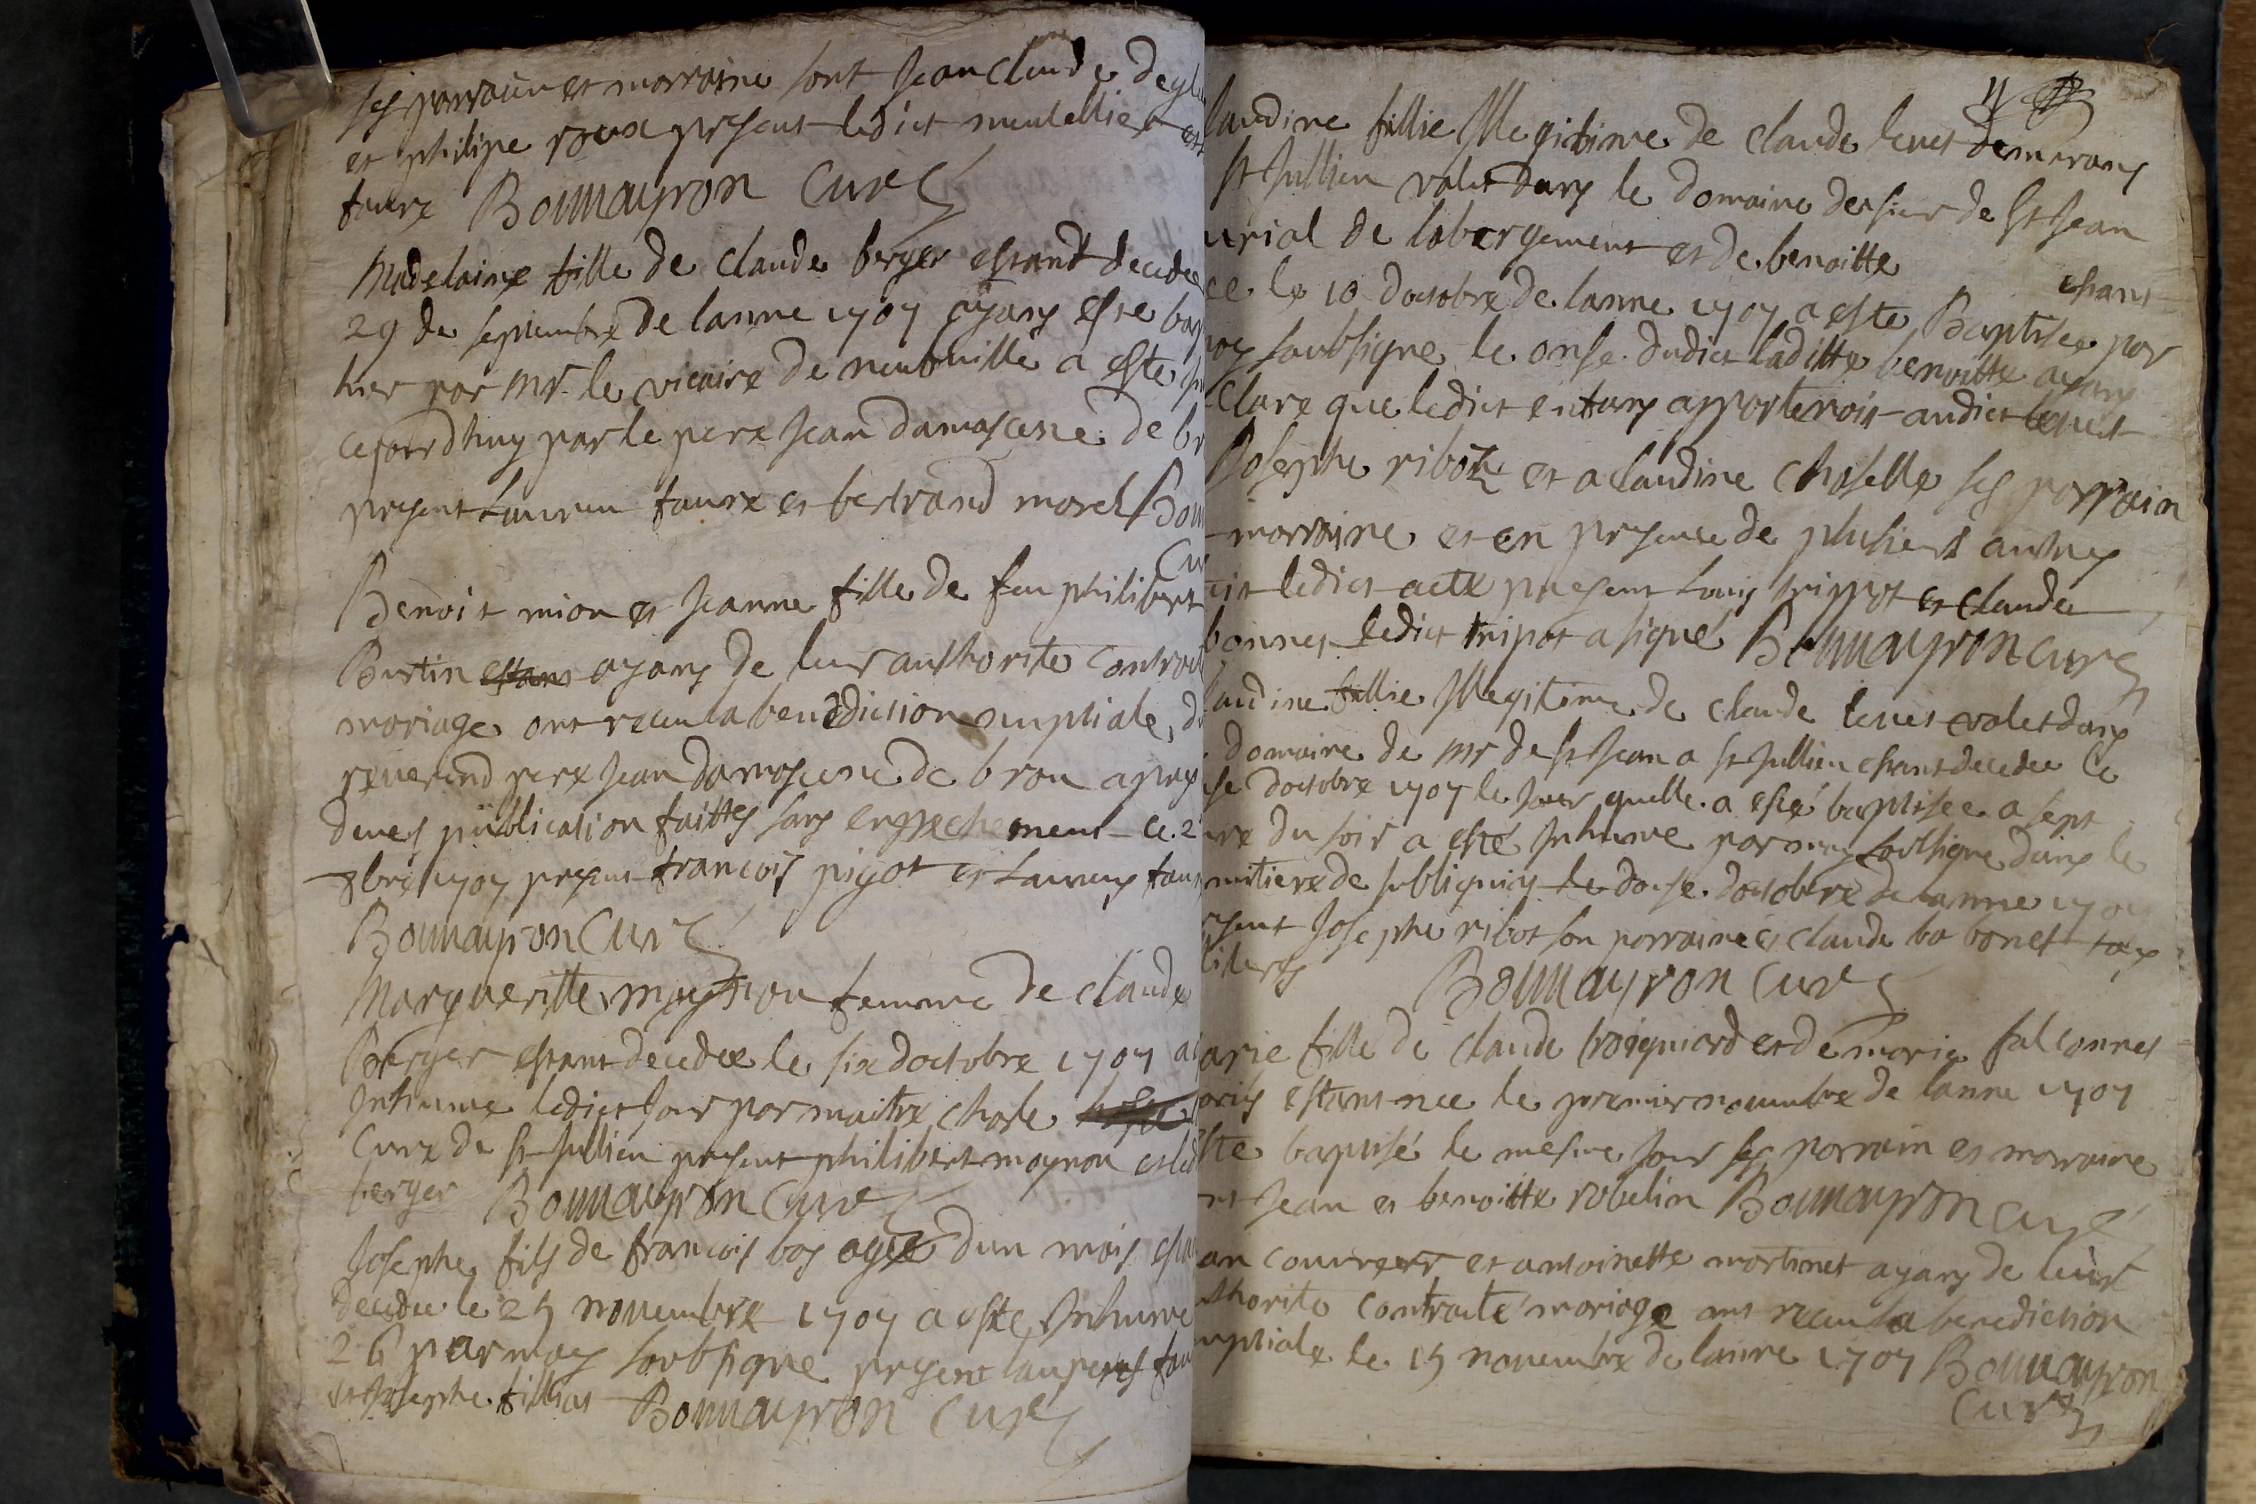 ses parrain et marraine sont Jean Claude degl
et philipe roux present ledict meutellier et
faure Bonnayron Curé
Madelaine fille de Claude berger estant decedee
29 de septembre de lanne 1707 ayans este bap
hier par mr. le vicaire de neufville a este In
ce jourdhuy par le pere Jean damascene de br
present Lauren faure et bertrand morel Bon
Cu
Benoist mion et Jeanne fille de feu philibert
Burtin estans ayans de leur authorite contract
mariage ont receu la benediction nuptiale, d
reverend pere Jean damascene de brou apres
deues publication faittes sans enpechement ce 2
8bre 1707 present francois pigot et Laurens faur
Bonnayron Curé
Margueritte moynon femme de claude
Berger estant decedee le six doctobre 1707 a
Inhume ledict Jour par maitre charle
Cure de st Jullien present philibert moynon et led
berger Bonnayron Curé
Josephe fils de francois bos agee dun mois estan
decedee le 25 novembre 1707 a este Inhume
26 par moy soubsigne present laurens fau
et Josephe fillion Bonnayron Curé
11
laudine fillie Illegitime de claude levet demurans
st Jullien valet dans le domaine de sieur de st Jean
urial de labergement et de benoitte
estant
ee le 10 doctobre de lanne 1707 a este Baptisee par
moy soubsigne le onse dudict laditte benoitte ayans
clare que ledict enfans appartenoit audict levet
Josephe ribot et a claudine choselle ses parrain
marraine et en presence de plusieurs autres
ledict acte present Louis trippot et claude
bonnet ledict tripot a signé Bonnayron curé
laudine fillie Illegitime de claude levet valet dans
domaine de mr de st Jean a st Jullien estant decedee le
se doctobre 1707 le Jour quelle a esté baptisee a sept
ure du soir a esté Inhume par moy soubsigne dans le
mitiere de subligny le douse doctobre de lanne 1707
sent Josephe ribot son parraine et claude ba bonet
Bonnayron Curé
arie fille de claude broignard et de marie falconnet
estant nee le premier novembre de lanne 1707
ste baptisé le mesme Jour ses parrain et marraine
nt Jean et benoitte robelin Bonnayron curé
an couvreur et antoinette martinet ayans de leur
uthorite contracté mariage ont receu la benediction
uptiale le 15 novembre de lanne 1707 Bonnayron
Curé